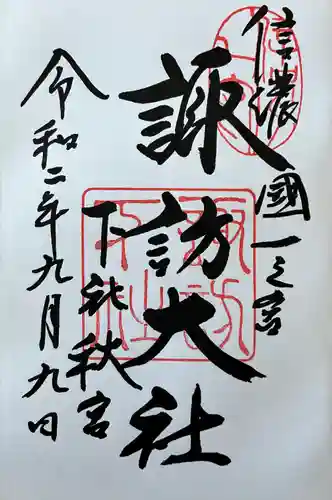 信濃國一之宮
諏訪大社
下社秋宮
令和二年九月九日